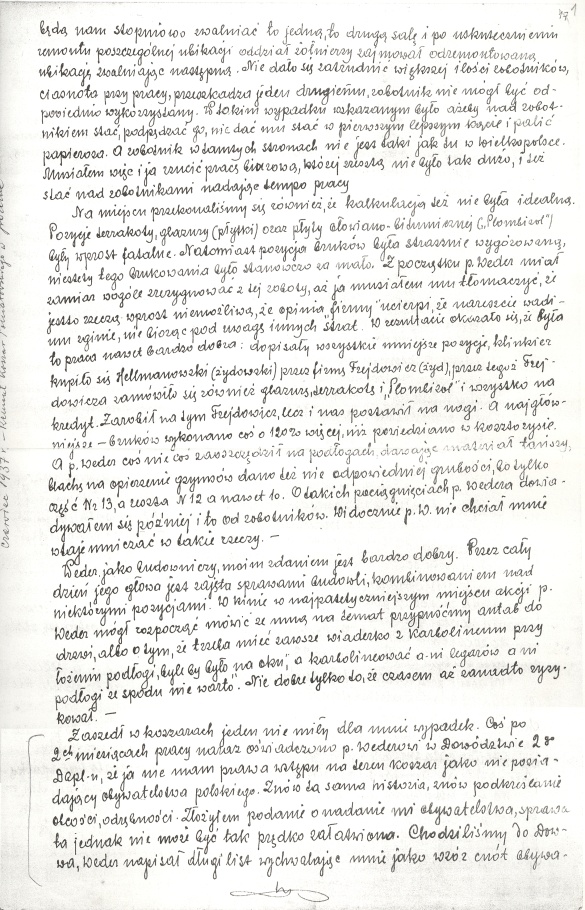 77 1
będą nam stopniowo zwalniać to jedną, to drugą salę i po uskutecznieniu
remontu poszczególnej ubikacji oddział żołnierzy zajmował odremontowaną
ubikację zwalniając następną. Nie dało się zatrudnić większej ilości robotników,
ciasnota przy pracy, przeszkadza jeden drugiemu, robotnik nie mógł być od-
powiednio wykorzystany. W takim wypadku wskazanym było ażeby nad robot-
nikiem stać, podpędzać go, nie dać mu stać w pierwszym lepszym kącie i palić
papierosa. A robotnik w tamtych stronach nie jest taki jak tu w Wielkopolsce.
Musiałem więc i ja rzucić pracę biurową, której zresztą nie było tak dużo, i też
stać nad robotnikami nadając tempo pracy
Na miejscu przekonaliśmy się również, że kalkulacja też nie była idealna.
Pozycje terrakoty, glazury (płytki) oraz płyty ołowiano-bitumicznej ("Plombizol")
były wprost fatalne. Natomiast pozycja bruków była strasznie wygórowana,
niestety tego brukowania było stanowczo za mało. Z początku p. Weder miał
zamiar wogóle zrezygnować z tej roboty, aż ja musiałem mu tłomaczyć, że
jest to rzeczą wprost niemożliwą, że opinia "firmy" ucierpi, że nareszcie wadi-
um zginie, nie biorąc pod uwagę innych "strat". W rezultacie okazało się, że była
to praca nawet bardzo dobra: dopisały wszystkie mniejsze pozycje, klinkier
kupiło się Hellmanowski (żydowski) przez firmę Frejdowicz (żyd), przez tegoż Frej-
dowicza zamówiło się również glazurę, terrakotę i "Plombizol" i wszystko na
kredyt. Zarobił na tym Frejdowicz, lecz i nas postawił na nogi. A najgłów-
niejsze – bruków wykonano coś o 120% więcej, niż powiedziano w kosztorysie.
A p. Weder coś nie coś zaoszczędził na podłogach, dawając materiał tańszy,
blachę na opierzenie gzymsów dano też nie odpowiedniej grubości, bo tylko
część Nr 13, a reszta N 12 a nawet 10. O takich pociągnięciach p. Wedera dowia-
dywałem się później i to od robotników. Widocznie p. W. nie chciał mnie
wtajemniczać w takie rzeczy. –
Weder, jako budowniczy, moim zdaniem jest bardzo dobry. Przez cały
dzień jego głowa jest zajęta sprawami budowli, kombinowaniem nad
niektórymi pozycjami. W kinie w najpatetyczniejszym miejscu akcji p.
Weder mógł rozpocząć mówić ze mną na temat przypuśćmy antab do
drzwi, albo o tym, że trzeba mieć zawsze wiaderko z karbolineum przy
łożeniu podłogi, byle by było "na oku", a karbolineować a-ni legarów a ni
podłogi ze spodu nie warto". Nie dobre tylko to, że czasem aż zanadto ryzy-
kował. –
Zaszedł w koszarach jeden nie miły dla mnie wypadek. Coś po
2ch miesiącach pracy naraz oświadczono p. Wederowi w Dowództwie 28
Dapl-u, że ja nie mam prawa wstępu na teren koszar jako nie posia-
dający obywatelstwa polskiego. Znów ta sama historia, znów podkreślanie
obcości, odrębności. Złożyłem podanie o nadanie mi obywatelstwa, sprawa
ta jednak nie może być tak prędko załatwiona. Chodziliśmy do Dow-
wa, Weder napisał długi list wychwalając mnie jako wzór cnót obywa-
Czerwiec 1937 r. – Remont koszar